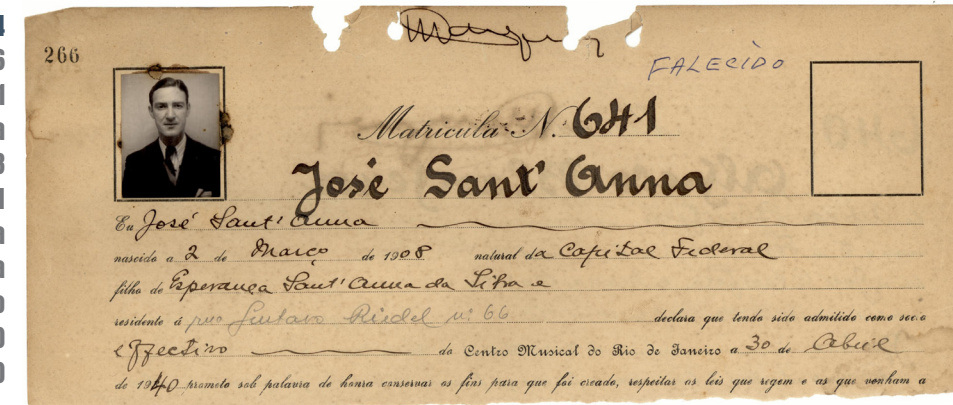 266
FALECIDO
Matricula N. 641
José Sant' Anna
Eu José Sant' Anna
nascido a 2 de Março de 1908 natural da Capital Federal
filho de Esperança Sant' Anna da Silva e
residente á rua Gustavo Riedel nº 66 declara que tendo sido admitido como socio
effectivo do Centro Musical do Rio de Janeiro a 30 de Abril
de 1940 prometo sob palavra de honra conservar os fins para que foi creado, respeitar as leis que regem e as que venham a